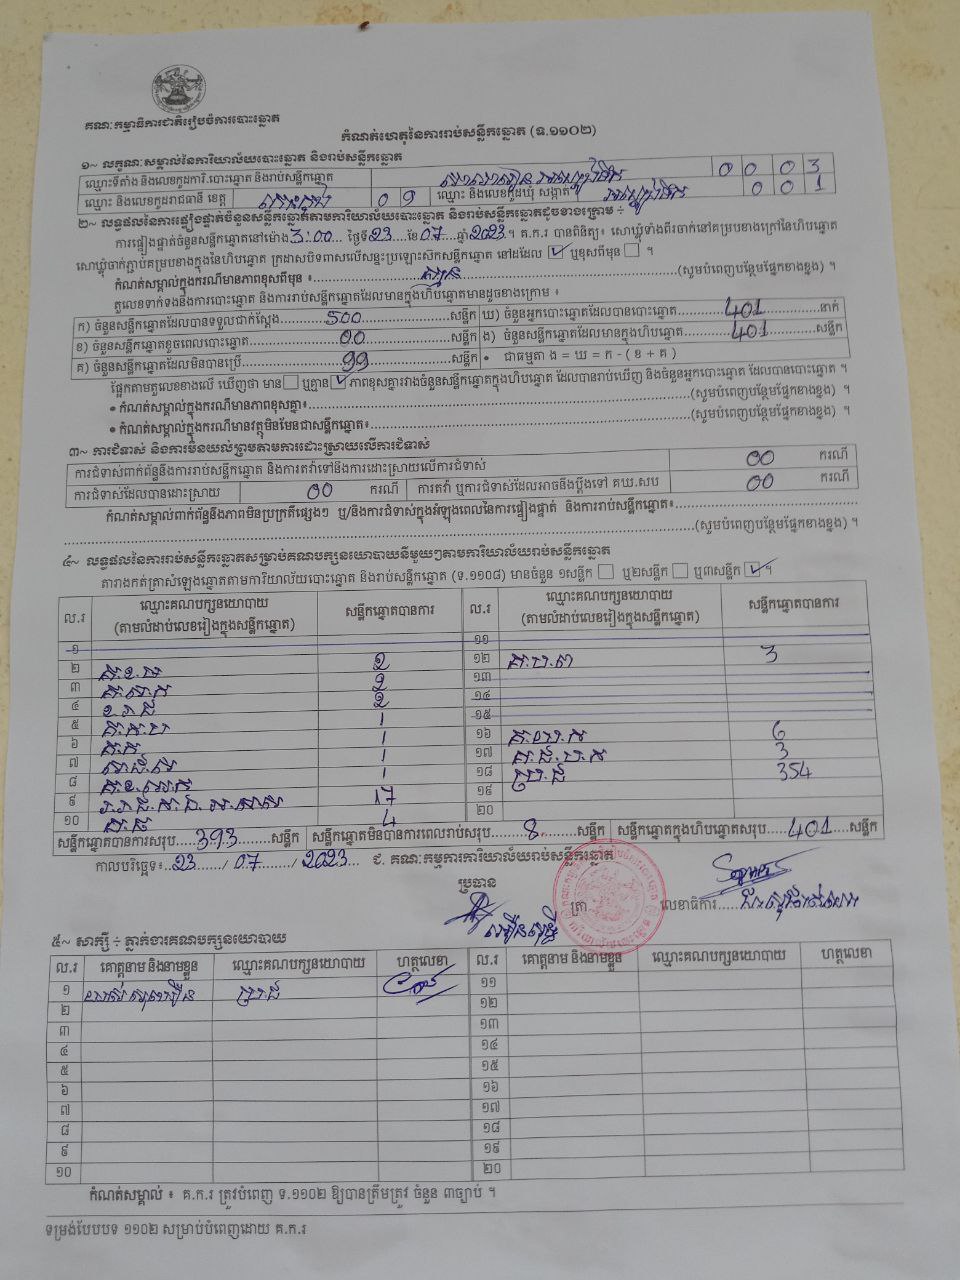 គណៈកម្មាធិការជាតិរៀបចំការបោះឆ្នោត
កំណត់ហេតុនៃការរាប់សន្លឹកឆ្នោត (ទ.១១០២)
១~ លក្ខណៈសម្គាល់នៃការិយាល័យបោះឆ្នោត និងរាប់សន្លឹកឆ្នោត
ឈ្មោះទីតាំង និងលេខកូដការិ.បោះឆ្នោត និងរាប់សន្លឹកឆ្នោត 0 0 0 3
ឈ្មោះ និងលេខកូដរាជធានី ខេត្ត 0 9 ឈ្មោះ និងលេខកូដឃុំ សង្កាត់ 0 0 1
២~ លទ្ធផលនៃការផ្ទៀងផ្ទាត់ចំនួនសន្លឹកឆ្នោតតាមការិយាល័យបោះឆ្នោត និងរាប់សន្លឹកឆ្នោតដូចខាងក្រោម ÷
ការផ្ទៀងផ្ទាត់ចំនួនសន្លឹកឆ្នោតនៅម៉ោង 3:00 ថ្ងៃទី 23 ខែ 07 ឆ្នាំ 2023។ គ.ក.រ បានពិនិត្យ៖ សោឃ្លុំទាំងពីរចាក់នៅគម្របខាងក្រៅនៃហិបឆ្នោត
សោឃ្លុំចាក់ភ្ជាប់គម្របខាងក្នុងនៃហិបឆ្នោត ក្រដាសបិទពាសលើសន្ទះប្រឡោះស៊កសន្លឹកឆ្នោត នៅដដែល ☑ ឬខុសពីមុន ☐ ។
កំណត់សម្គាល់ក្នុងករណីមានភាពខុសពីមុន ៖ គ្មាន (សូមបំពេញបន្ថែមផ្នែកខាងខ្នង) ។
តួលេខទាក់ទងនឹងការបោះឆ្នោត និងការរាប់សន្លឹកឆ្នោតដែលមានក្នុងហិបឆ្នោតមានដូចខាងក្រោម ៖
ក) ចំនួនសន្លឹកឆ្នោតដែលបានទទួលជាក់ស្តែង 500 សន្លឹក ឃ) ចំនួនអ្នកបោះឆ្នោតដែលបានបោះឆ្នោត 401 នាក់
ខ) ចំនួនសន្លឹកឆ្នោតខូចពេលបោះឆ្នោត 00 សន្លឹក ង) ចំនួនសន្លឹកឆ្នោតដែលមានក្នុងហិបឆ្នោត 401 សន្លឹក
គ) ចំនួនសន្លឹកឆ្នោតដែលមិនបានប្រើ 99 សន្លឹក • ជាធម្មតា ង = ឃ = ក - ( ខ + គ )
ផ្អែកតាមតួលេខខាងលើ ឃើញថា មាន ☐ ឬគ្មាន ☑ ភាពខុសគ្នារវាងចំនួនសន្លឹកឆ្នោតក្នុងហិបឆ្នោត ដែលបានរាប់ឃើញ និងចំនួនអ្នកបោះឆ្នោត ដែលបានបោះឆ្នោត ។
• កំណត់សម្គាល់ក្នុងករណីមានភាពខុសគ្នា៖ (សូមបំពេញបន្ថែមផ្នែកខាងខ្នង) ។
• កំណត់សម្គាល់ក្នុងករណីមានវត្ថុមិនមែនជាសន្លឹកឆ្នោត៖ (សូមបំពេញបន្ថែមផ្នែកខាងខ្នង) ។
៣~ ការជំទាស់ និងការមិនយល់ព្រមតាមការដោះស្រាយលើការជំទាស់
ការជំទាស់ពាក់ព័ន្ធនឹងការរាប់សន្លឹកឆ្នោត និងការតវ៉ាទៅនឹងការដោះស្រាយលើការជំទាស់ 00 ករណី
ការជំទាស់ដែលបានដោះស្រាយ 00 ករណី ការតវ៉ា ឬការជំទាស់ដែលអាចនឹងប្តឹងទៅ គឃ.សប 00 ករណី
កំណត់សម្គាល់ពាក់ព័ន្ធនឹងភាពមិនប្រក្រតីផ្សេងៗ ឬ/និងការជំទាស់ក្នុងអំឡុងពេលនៃការផ្ទៀងផ្ទាត់ និងការរាប់សន្លឹកឆ្នោត៖
(សូមបំពេញបន្ថែមផ្នែកខាងខ្នង) ។
៤~ លទ្ធផលនៃការរាប់សន្លឹកឆ្នោតសម្រាប់គណបក្សនយោបាយនីមួយៗតាមការិយាល័យរាប់សន្លឹកឆ្នោត
តារាងកត់ត្រាសំឡេងឆ្នោតតាមការិយាល័យបោះឆ្នោត និងរាប់សន្លឹកឆ្នោត (ទ.១១០៨) មានចំនួន ១សន្លឹក ☐ ឬ២សន្លឹក ☐ ឬ៣សន្លឹក ☑ ។
ល.រ ឈ្មោះគណបក្សនយោបាយ (តាមលំដាប់លេខរៀងក្នុងសន្លឹកឆ្នោត) សន្លឹកឆ្នោតបានការ ល.រ ឈ្មោះគណបក្សនយោបាយ (តាមលំដាប់លេខរៀងក្នុងសន្លឹកឆ្នោត) សន្លឹកឆ្នោតបានការ
១ ១១
២ គ.ខ.ម 2 ១២ គ.ប.ព 3
៣ 2 ១៣
៤ ខ.រ.ជ 2 ១៤
៥ គ.ក.ប 1 ១៥
៦ គ.ក 1 ១៦ 6
៧ 1 ១៧ គ.ជ.ប.ក 3
៨ 1 ១៨ ប្រ.ជ 354
៩ 17 ១៩
១០ 4 ២០
សន្លឹកឆ្នោតបានការសរុប 393 សន្លឹក សន្លឹកឆ្នោតមិនបានការពេលរាប់សរុប 8 សន្លឹក សន្លឹកឆ្នោតក្នុងហិបឆ្នោតសរុប 401 សន្លឹក
កាលបរិច្ឆេទ៖ 23 / 07 / 2023 ជ. គណៈកម្មការការិយាល័យរាប់សន្លឹកឆ្នោត
ប្រធាន
ត្រា លេខាធិការ
៥~ សាក្សី ÷ ភ្នាក់ងារគណបក្សនយោបាយ
ល.រ គោត្តនាម និងនាមខ្លួន ឈ្មោះគណបក្សនយោបាយ ហត្ថលេខា ល.រ គោត្តនាម និងនាមខ្លួន ឈ្មោះគណបក្សនយោបាយ ហត្ថលេខា
១ ប្រ.ជ ១១
២ ១២
៣ ១៣
៤ ១៤
៥ ១៥
៦ ១៦
៧ ១៧
៨ ១៨
៩ ១៩
១០ ២០
កំណត់សម្គាល់ ៖ គ.ក.រ ត្រូវបំពេញ ទ.១១០២ ឱ្យបានត្រឹមត្រូវ ចំនួន ៣ច្បាប់ ។
ទម្រង់បែបបទ ១១០២ សម្រាប់បំពេញដោយ គ.ក.រ